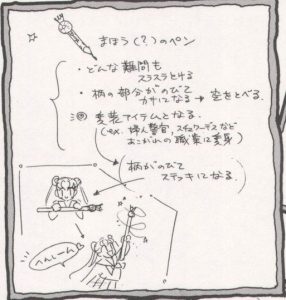 まほう(?)のペン
・どんな難問も
スラスラとける
・柄の部分がのびて
カサになる→空をとべる.
変装アイテムとなる.
(ex. 婦人警官、スチュワーデスなど
あこがれの職業に変身)
柄がのびて
ステッキになる.
へんしーん